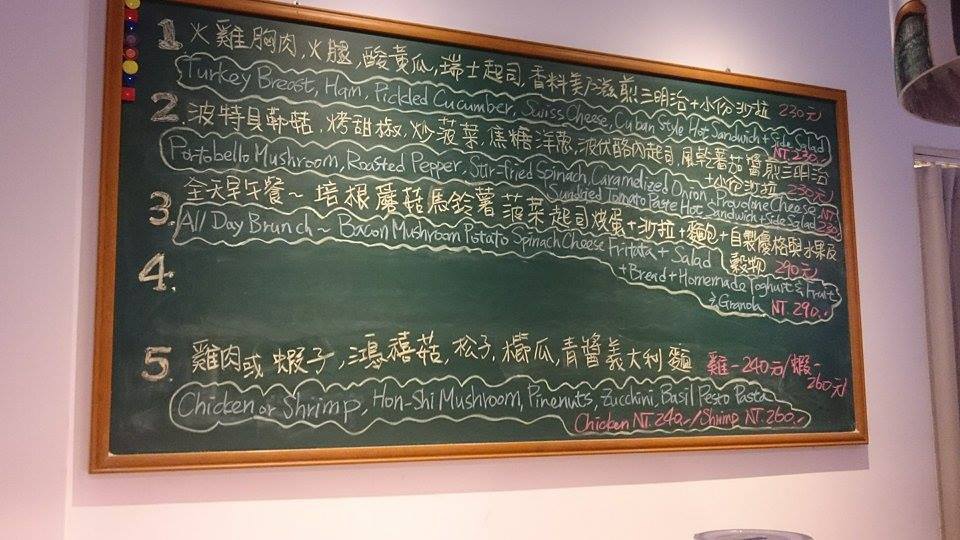 1 火雞胸肉,火腿,酸黃瓜,瑞士起司,香料美乃滋煎三明治+小份沙拉 230元
Turkey Breast, Ham, Pickled Cucumber, Swiss Cheese, Cuban Style Hot Sandwich + Side Salad
NT.230.-
2 波特貝勒菇,烤甜椒,炒菠菜,焦糖洋蔥,波伏洛內起司,風乾蕃茄醬煎三明治
+小份沙拉 230元
Portobello Mushroom, Roasted Pepper, Stir-fried Spinach, Caramelized Onion, Provolone Cheese
Sundried Tomato Paste Hot Sandwich + Side Salad NT 230
3. 全天早午餐~培根蘑菇馬鈴薯菠菜起司烘蛋+沙拉+麵包+自製優格與水果及
穀物 290元
All Day Brunch ~ Bacon Mushroom Potato Spinach Cheese Fritata + Salad
+ Bread + Homemade Yoghurt & Fruit
& Granola NT.290.-
4.
5. 雞肉或蝦子,鴻禧菇,松子,櫛瓜,青醬義大利麵 雞-240元/蝦-
260元
Chicken or Shrimp, Hon-Shi Mushroom, Pinenuts, Zucchini, Basil Pesto Pasta
Chicken NT.240.-/Shrimp NT.260.-